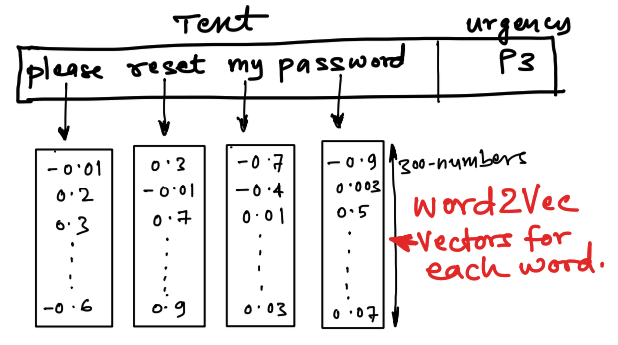 Text urgency
please reset my password P3
-0.01 0.3 -0.7 -0.9 300-numbers
0.2 -0.01 -0.4 0.003
0.3 0.7 0.01 0.5
-0.6 0.9 0.03 0.07
word2Vec
Vectors for
each word.